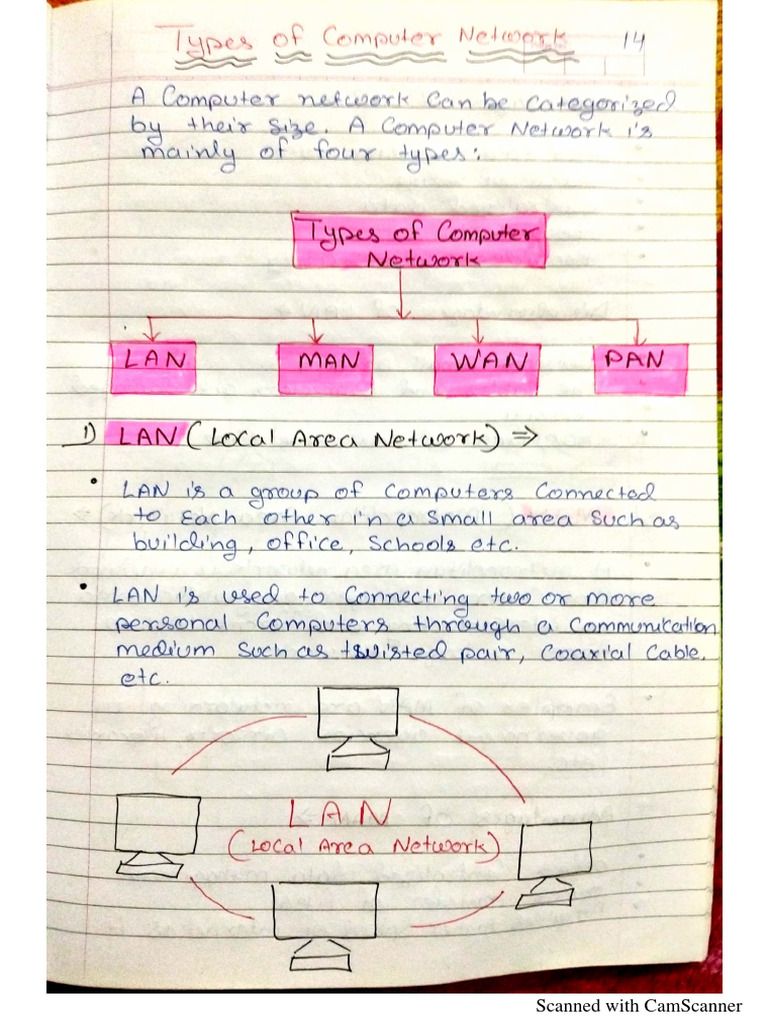 Types of Computer Network 14
A Computer network Can be Categorized
by their size. A Computer Network is
mainly of four types:
Types of Computer
Network
LAN MAN WAN PAN
1) LAN (Local Area Network) ⇒
• LAN is a group of Computers Connected
to Each other in a small area such as
building, office, Schools etc.
• LAN is used to Connecting two or more
personal Computers through a Communication
medium such as twisted pair, Coaxial Cable.
etc.
LAN
(Local Area Network)
Scanned with CamScanner